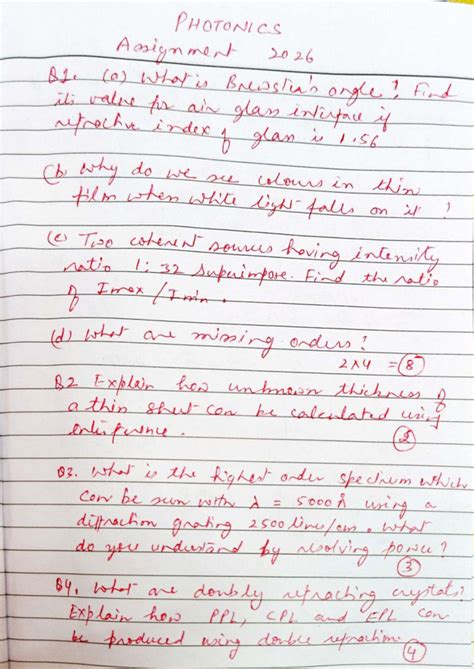 PHOTONICS
Assignment 2026
Q1. (a) What is Brewster's angle? Find
its value for air glass interface if
refractive index of glass is 1.56
(b) Why do we see colours in thin
film when white light falls on it?
(c) Two coherent sources having intensity
ratio 1:32 superimpose. Find the ratio
of Imax/Imin.
(d) What are missing orders?
2x4 = 8
Q2 Explain how unknown thickness of
a thin sheet can be calculated using
interference.
Q3. What is the highest order spectrum which
can be seen with λ = 5000Å using a
diffraction grating 2500 lines/cm. What
do you understand by resolving power?
3
Q4. What are doubly refracting crystals?
Explain how PPL, CPL and EPL can
be produced using double refraction.
4